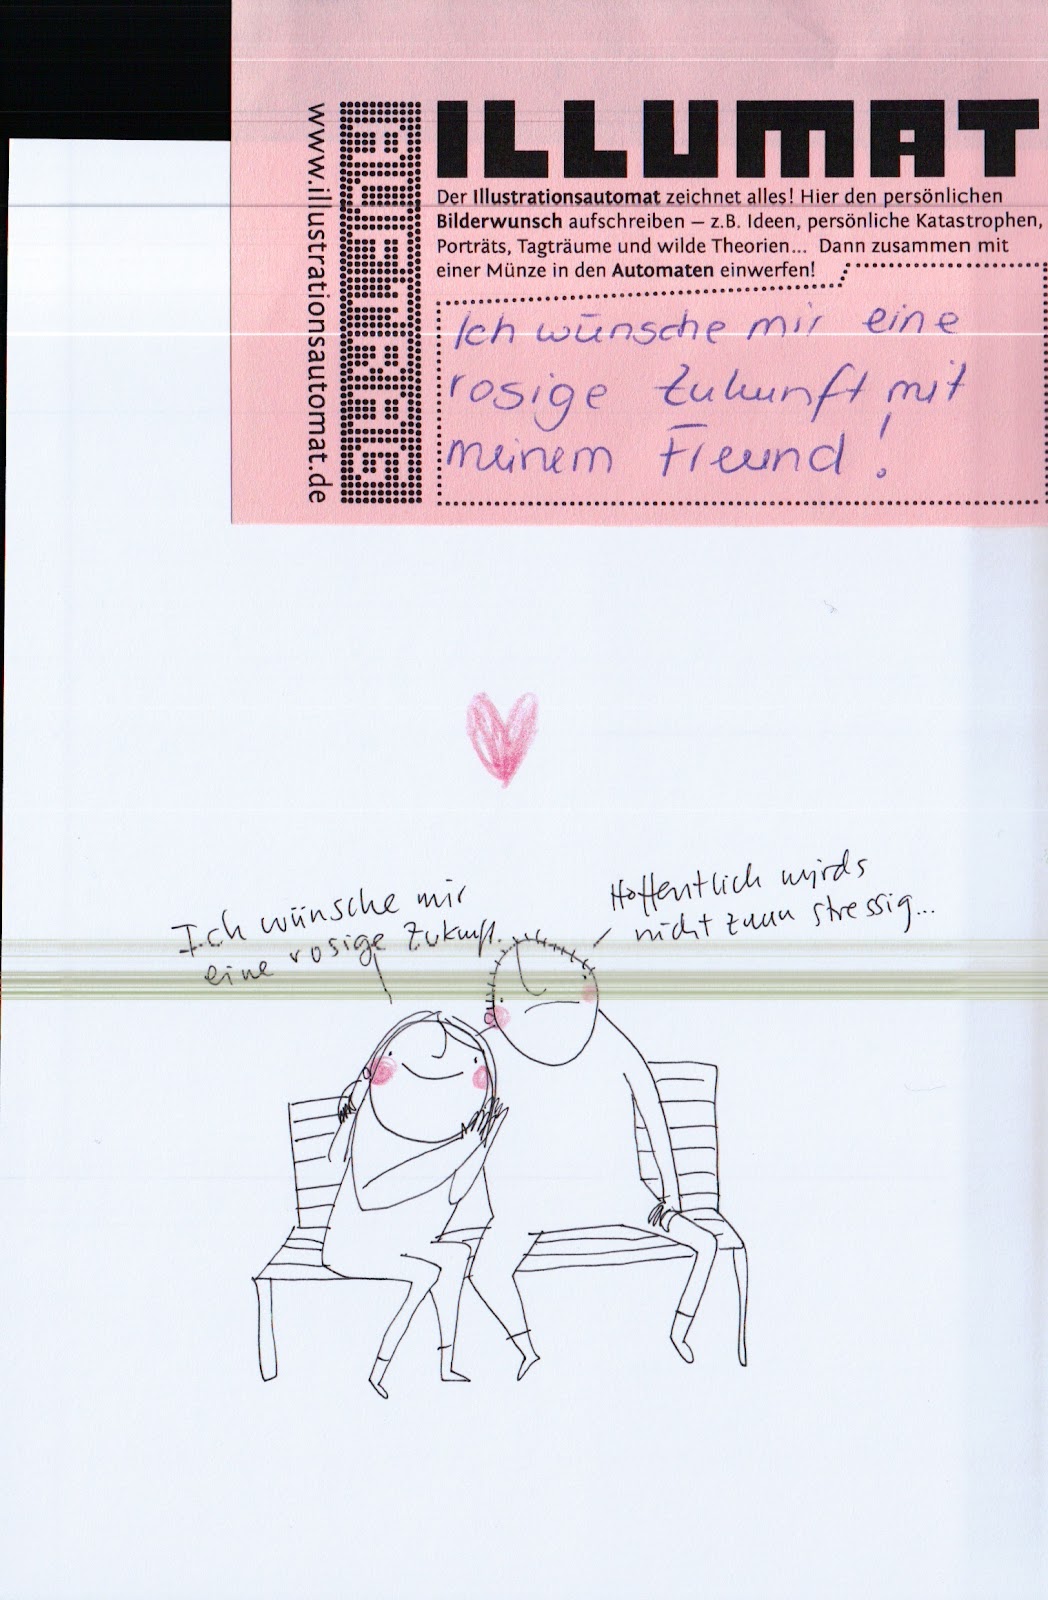 ILLUMAT
Der Illustrationsautomat zeichnet alles! Hier den persönlichen
Bilderwunsch aufschreiben – z.B. Ideen, persönliche Katastrophen,
Porträts, Tagträume und wilde Theorien... Dann zusammen mit
einer Münze in den Automaten einwerfen!
www.illustrationsautomat.de
Ich wünsche mir eine
rosige Zukunft mit
meinem Freund!
Ich wünsche mir
eine rosige Zukunft.
Hoffentlich wirds
nicht zuuu stressig...